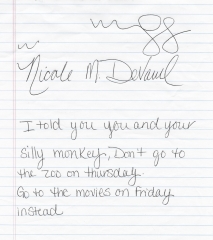 Nicole M. DeVaul
I told you you and your
silly monkey, Don't go to
the zoo on thursday.
Go to the movies on friday
instead